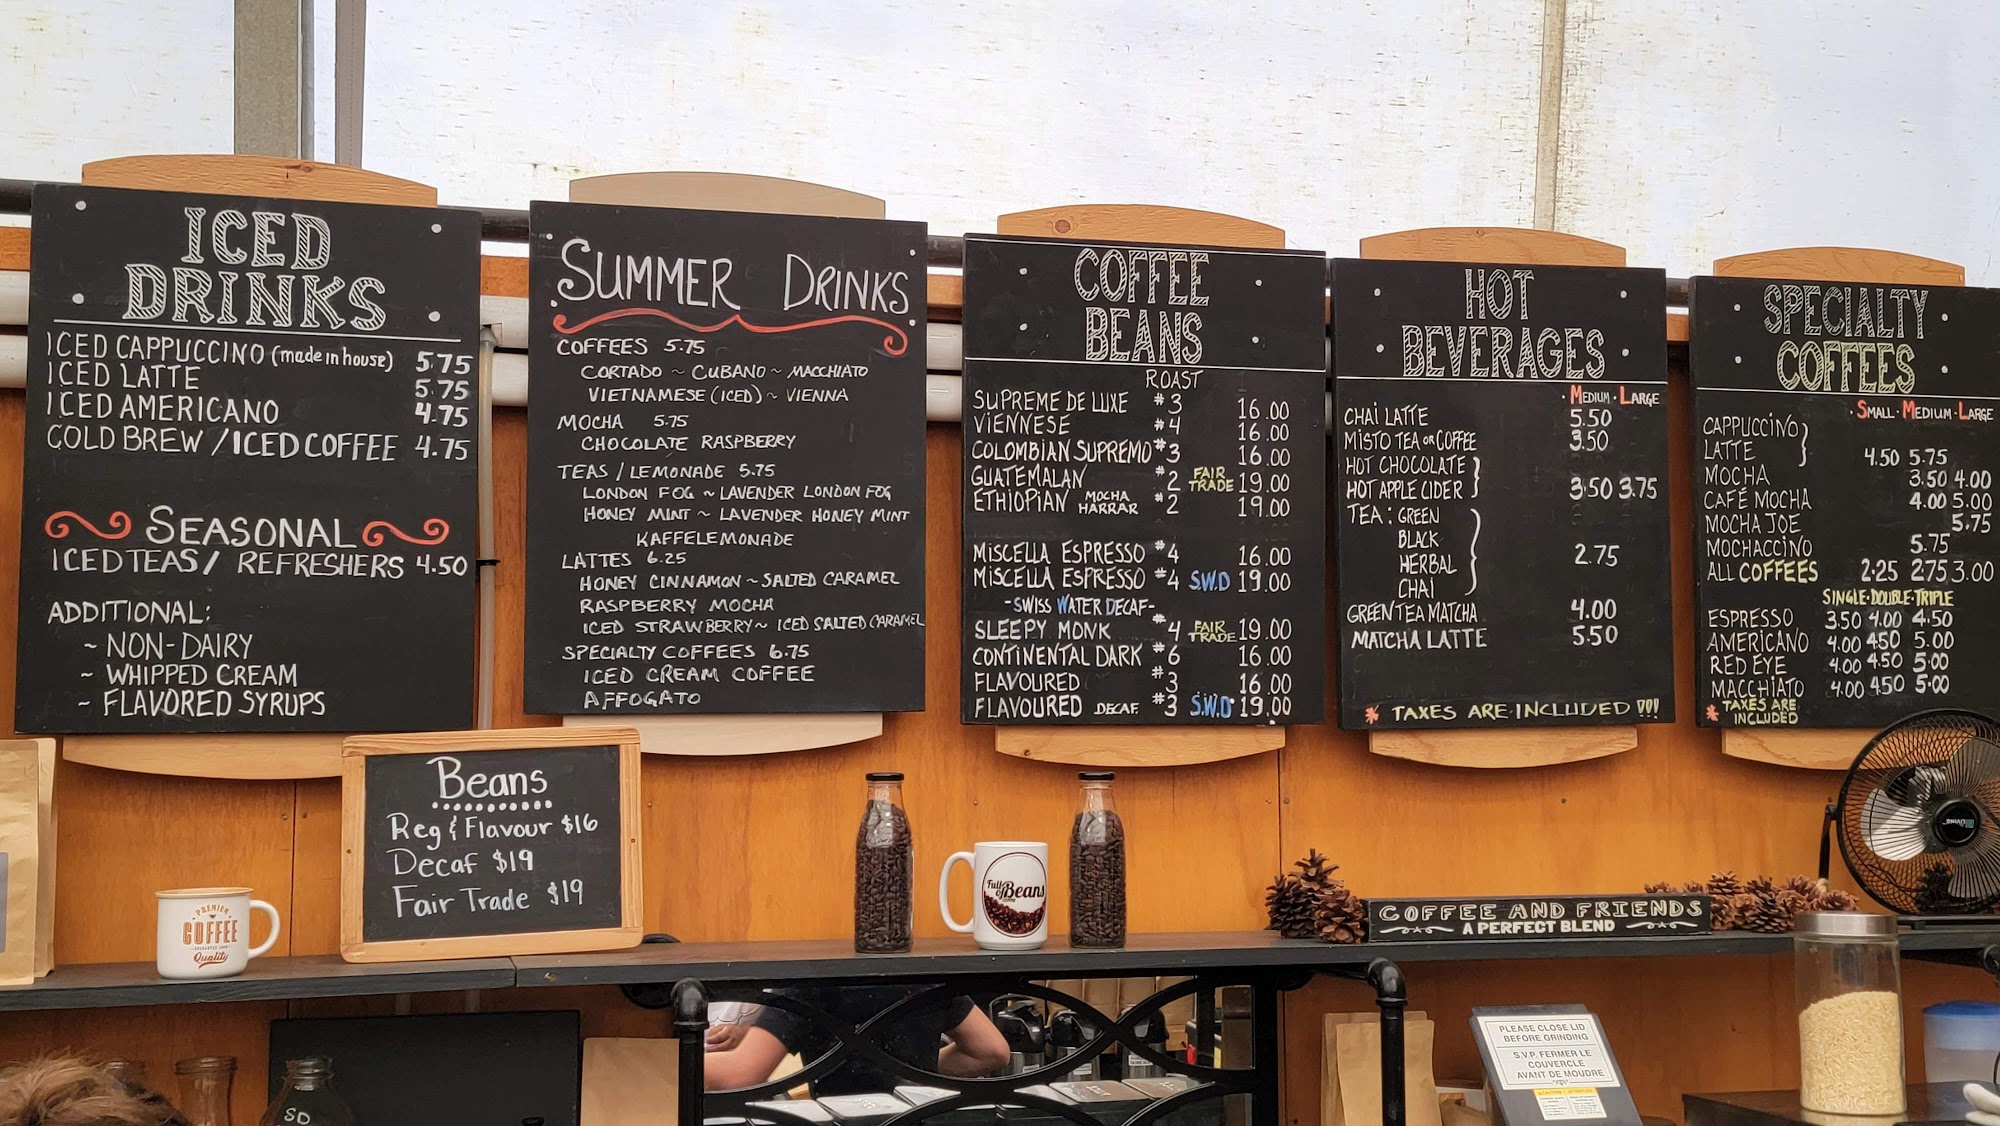 ICED
DRINKS
ICED CAPPUCCINO (made in house) 5.75
ICED LATTE 5.75
ICED AMERICANO 4.75
COLD BREW / ICED COFFEE 4.75
SEASONAL
ICED TEAS / REFRESHERS 4.50
ADDITIONAL:
~ NON-DAIRY
~ WHIPPED CREAM
~ FLAVORED SYRUPS
SUMMER DRINKS
COFFEES 5.75
CORTADO ~ CUBANO ~ MACCHIATO
VIETNAMESE (ICED) ~ VIENNA
MOCHA 5.75
CHOCOLATE RASPBERRY
TEAS / LEMONADE 5.75
LONDON FOG ~ LAVENDER LONDON FOG
HONEY MINT ~ LAVENDER HONEY MINT
KAFFELEMONADE
LATTES 6.25
HONEY CINNAMON ~ SALTED CARAMEL
RASPBERRY MOCHA
ICED STRAWBERRY ~ ICED SALTED CARAMEL
SPECIALTY COFFEES 6.75
ICED CREAM COFFEE
AFFOGATO
COFFEE
BEANS
ROAST
SUPREME DE LUXE #3 16.00
VIENNESE #4 16.00
COLOMBIAN SUPREMO #3 16.00
GUATEMALAN #2 FAIR TRADE 19.00
ETHIOPIAN MOCHA HARRAR #2 19.00
MISCELLA ESPRESSO #4 16.00
MISCELLA ESPRESSO #4 S.W.D 19.00
-SWISS WATER DECAF-
SLEEPY MONK #4 FAIR TRADE 19.00
CONTINENTAL DARK #6 16.00
FLAVOURED #3 16.00
FLAVOURED DECAF. #3 S.W.D 19.00
HOT
BEVERAGES
· MEDIUM · LARGE
CHAI LATTE 5.50
MISTO TEA OR COFFEE 3.50
HOT CHOCOLATE
HOT APPLE CIDER } 3.50 3.75
TEA: GREEN
BLACK
HERBAL 2.75
CHAI
GREEN TEA MATCHA 4.00
MATCHA LATTE 5.50
* TAXES ARE INCLUDED !!!
SPECIALTY
COFFEES
· SMALL · MEDIUM · LARGE
CAPPUCCINO
LATTE } 4.50 5.75
MOCHA 3.50 4.00
CAFÉ MOCHA 4.00 5.00
MOCHA JOE 5.75
MOCHACCINO 5.75
ALL COFFEES 2.25 2.75 3.00
SINGLE · DOUBLE · TRIPLE
ESPRESSO 3.50 4.00 4.50
AMERICANO 4.00 4.50 5.00
RED EYE 4.00 4.50 5.00
MACCHIATO 4.00 4.50 5.00
* TAXES ARE
INCLUDED
Beans
Reg & Flavour $16
Decaf $19
Fair Trade $19
PREMIUM
COFFEE
Quality
Full of Beans
COFFEE AND FRIENDS
A PERFECT BLEND
PLEASE CLOSE LID
BEFORE GRINDING
S.V.P. FERMER LE
COUVERCLE
AVANT DE MOUDRE
SD